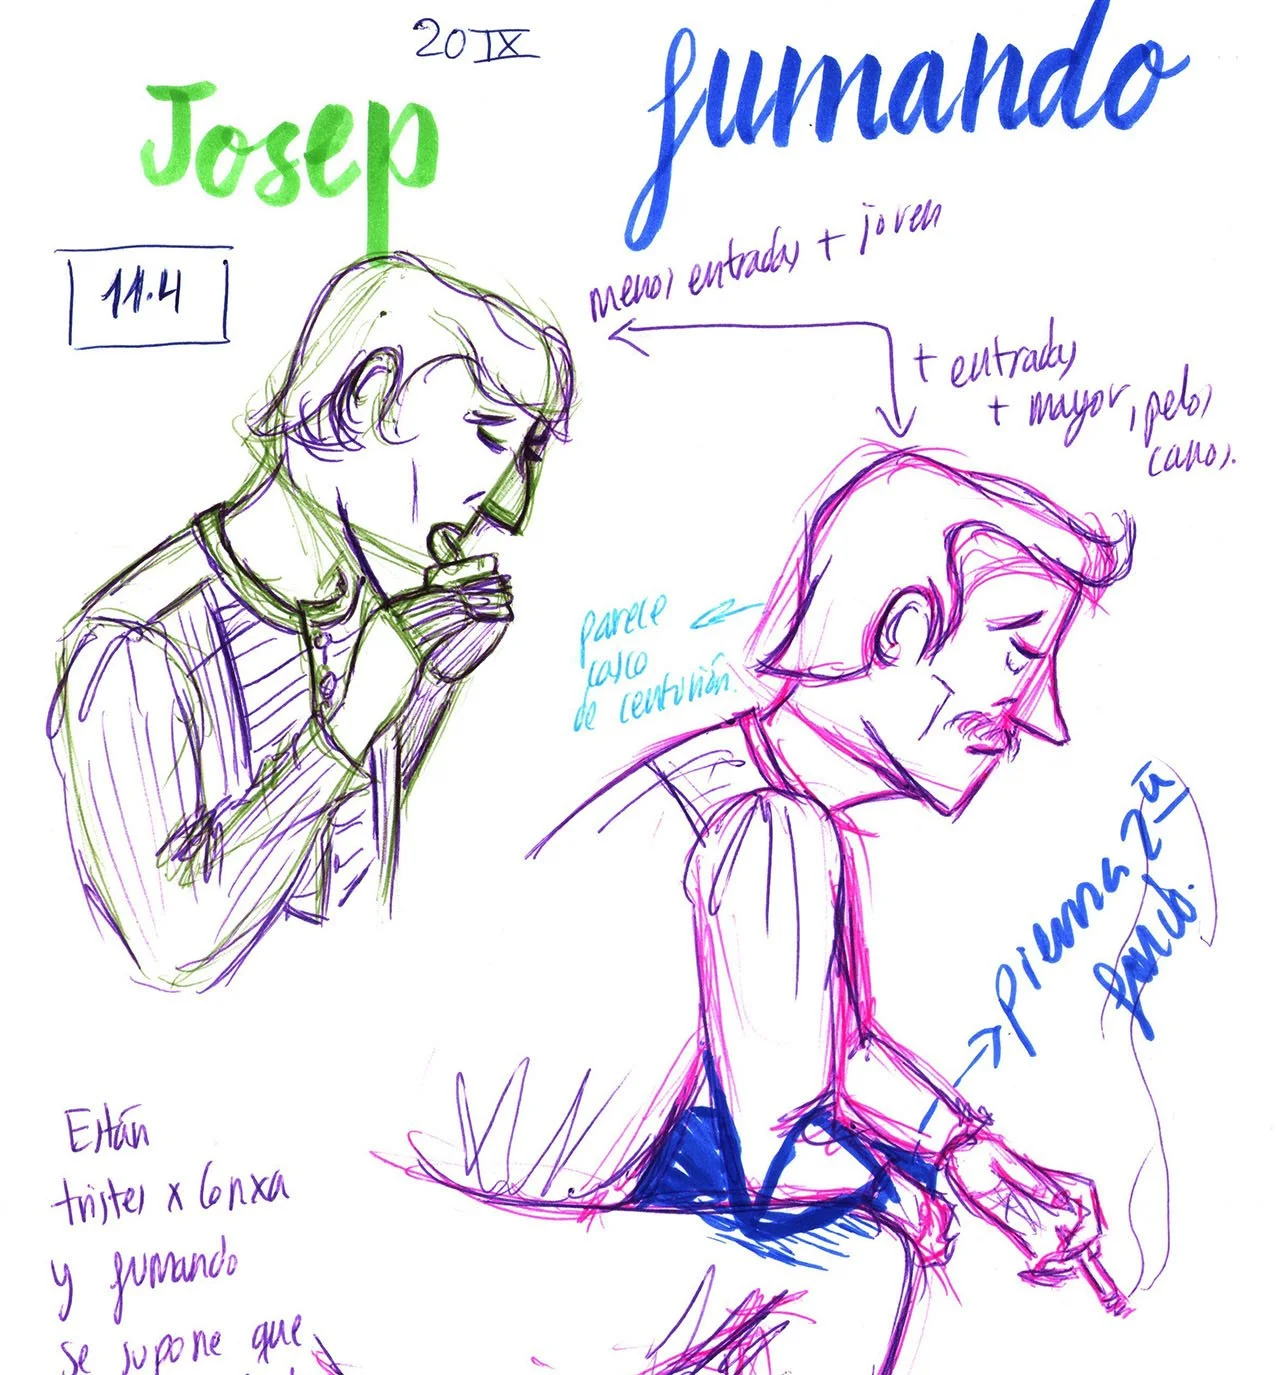 20 IX
Josep
fumando
11.4
menos entradas + joven
+ entradas
+ mayor, pelos
canos.
parece
casco
de centurión.
pierna 2º
fondo.
Están
tristes x Conxa
y fumando
se supone que